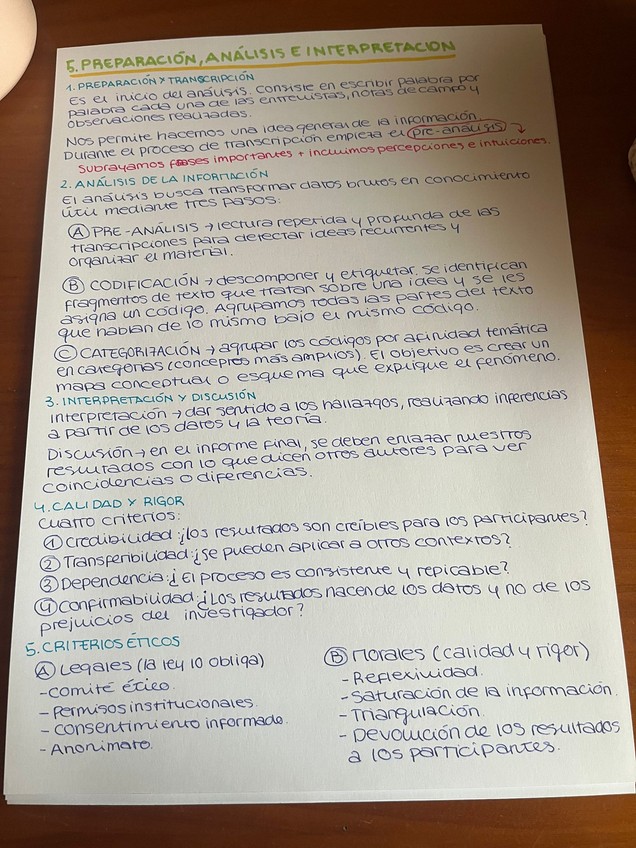 5. PREPARACIÓN, ANÁLISIS E INTERPRETACION
1. PREPARACIÓN Y TRANSCRIPCIÓN
Es el inicio del análisis. Consiste en escribir palabra por
palabra cada una de las entrevistas, notas de campo y
observaciones realizadas.
Nos permite hacernos una idea general de la información.
Durante el proceso de transcripción empieza el pre-análisis →
Subrayamos frases importantes + incluimos percepciones e intuiciones.
2. ANÁLISIS DE LA INFORMACIÓN
El análisis busca transformar datos brutos en conocimiento
útil mediante tres pasos:
Ⓐ PRE-ANÁLISIS → lectura repetida y profunda de las
transcripciones para detectar ideas recurrentes y
organizar el material.
Ⓑ CODIFICACIÓN → descomponer y etiquetar. Se identifican
fragmentos de texto que tratan sobre una idea y se les
asigna un código. Agrupamos todas las partes del texto
que hablan de lo mismo bajo el mismo código.
Ⓒ CATEGORIZACIÓN → agrupar los códigos por afinidad temática
en categorías (conceptos más amplios). El objetivo es crear un
mapa conceptual o esquema que explique el fenómeno.
3. INTERPRETACIÓN Y DISCUSIÓN
Interpretación → dar sentido a los hallazgos, realizando inferencias
a partir de los datos y la teoría.
Discusión → en el informe final, se deben enlazar nuestros
resultados con lo que dicen otros autores para ver
coincidencias o diferencias.
4. CALIDAD Y RIGOR
Cuatro criterios:
① Credibilidad: ¿los resultados son creíbles para los participantes?
② Transferibilidad: ¿se pueden aplicar a otros contextos?
③ Dependencia: ¿El proceso es consistente y repicable?
④ Confirmabilidad: ¿Los resultados nacen de los datos y no de los
prejuicios del investigador?
5. CRITERIOS ÉTICOS
Ⓐ Legales (la ley lo obliga)
- Comité ético.
- Permisos institucionales.
- Consentimiento informado.
- Anonimato.
Ⓑ Morales (calidad y rigor)
- Reflexividad.
- Saturación de la información.
- Triangulación.
- Devolución de los resultados
a los participantes.